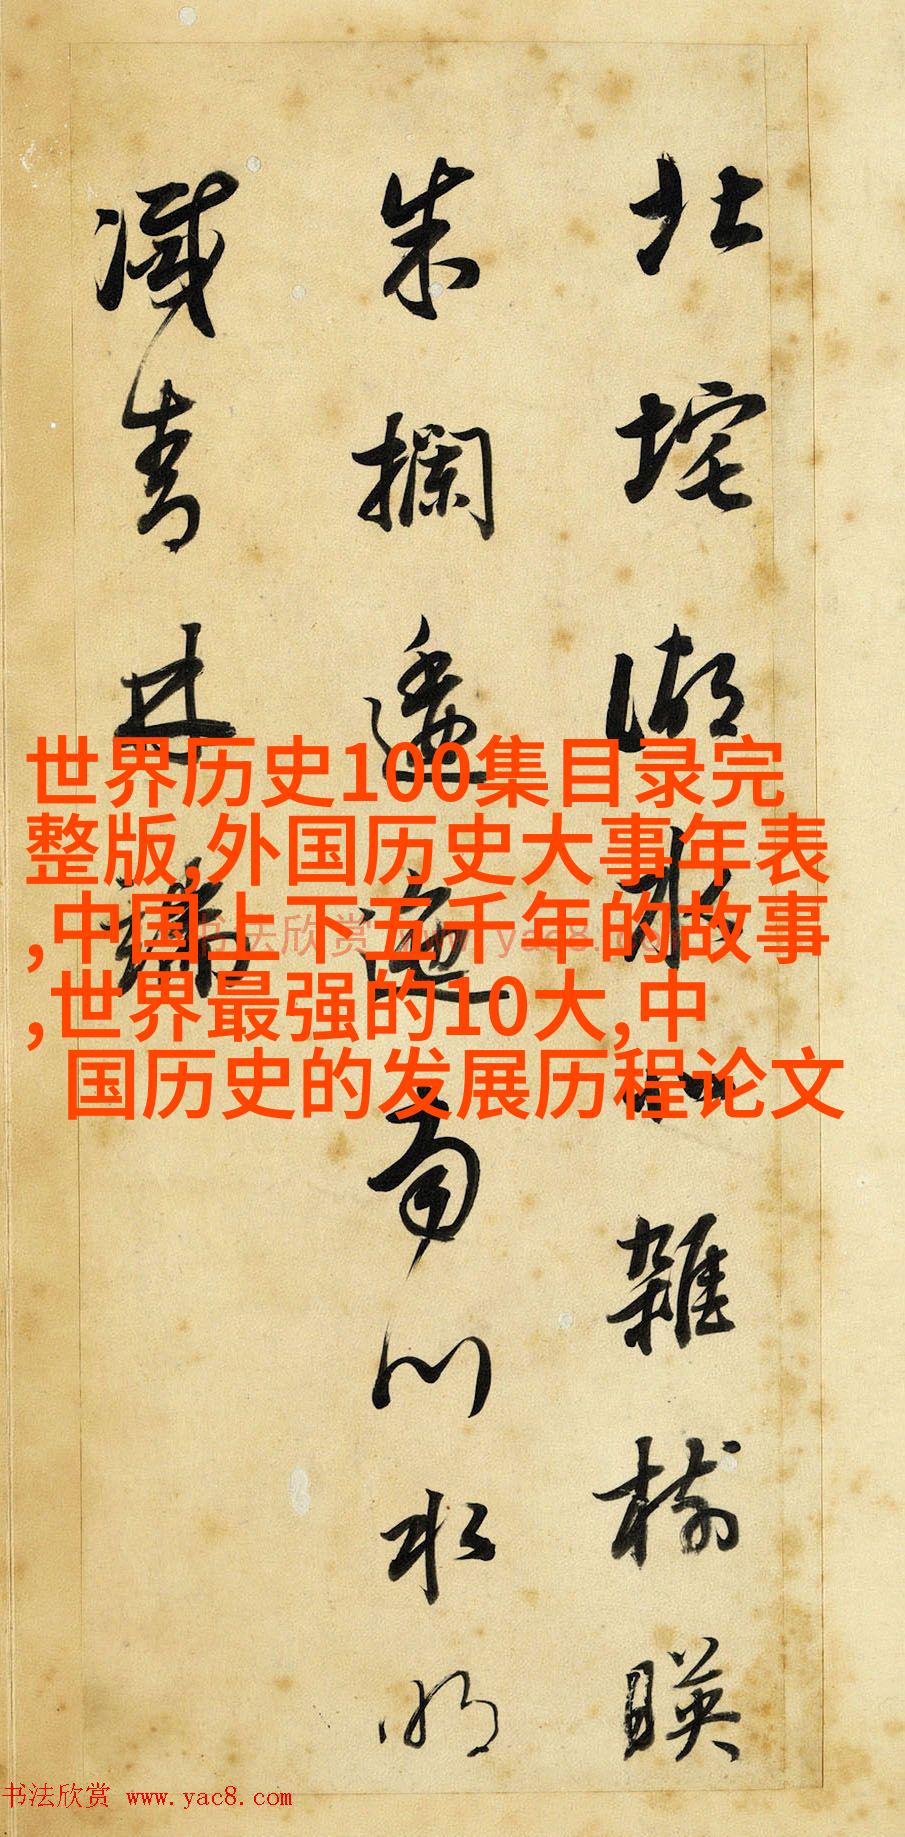 北垞湖水北雜樹暎
朱欄逶迤南川水明
滅青林端
世界历史100集目录完
整版,外国历史大事年表
,中国上下五千年的故事
,世界最强的10大,中
国历史的发展历程论文
书法欣赏 www.yac8.com
书法欣赏 www.yac8.com